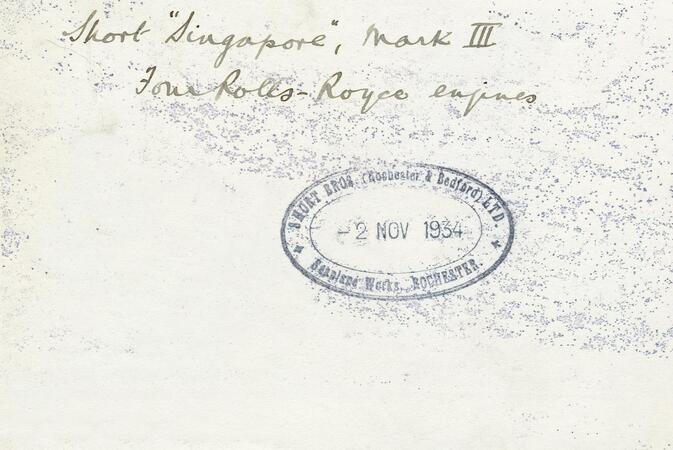 Short "Singapore", Mark III
Four Rolls-Royce engines
SHORT BROS. (Rochester & Bedford) LTD.
-2 NOV 1934
Seaplane Works, ROCHESTER.